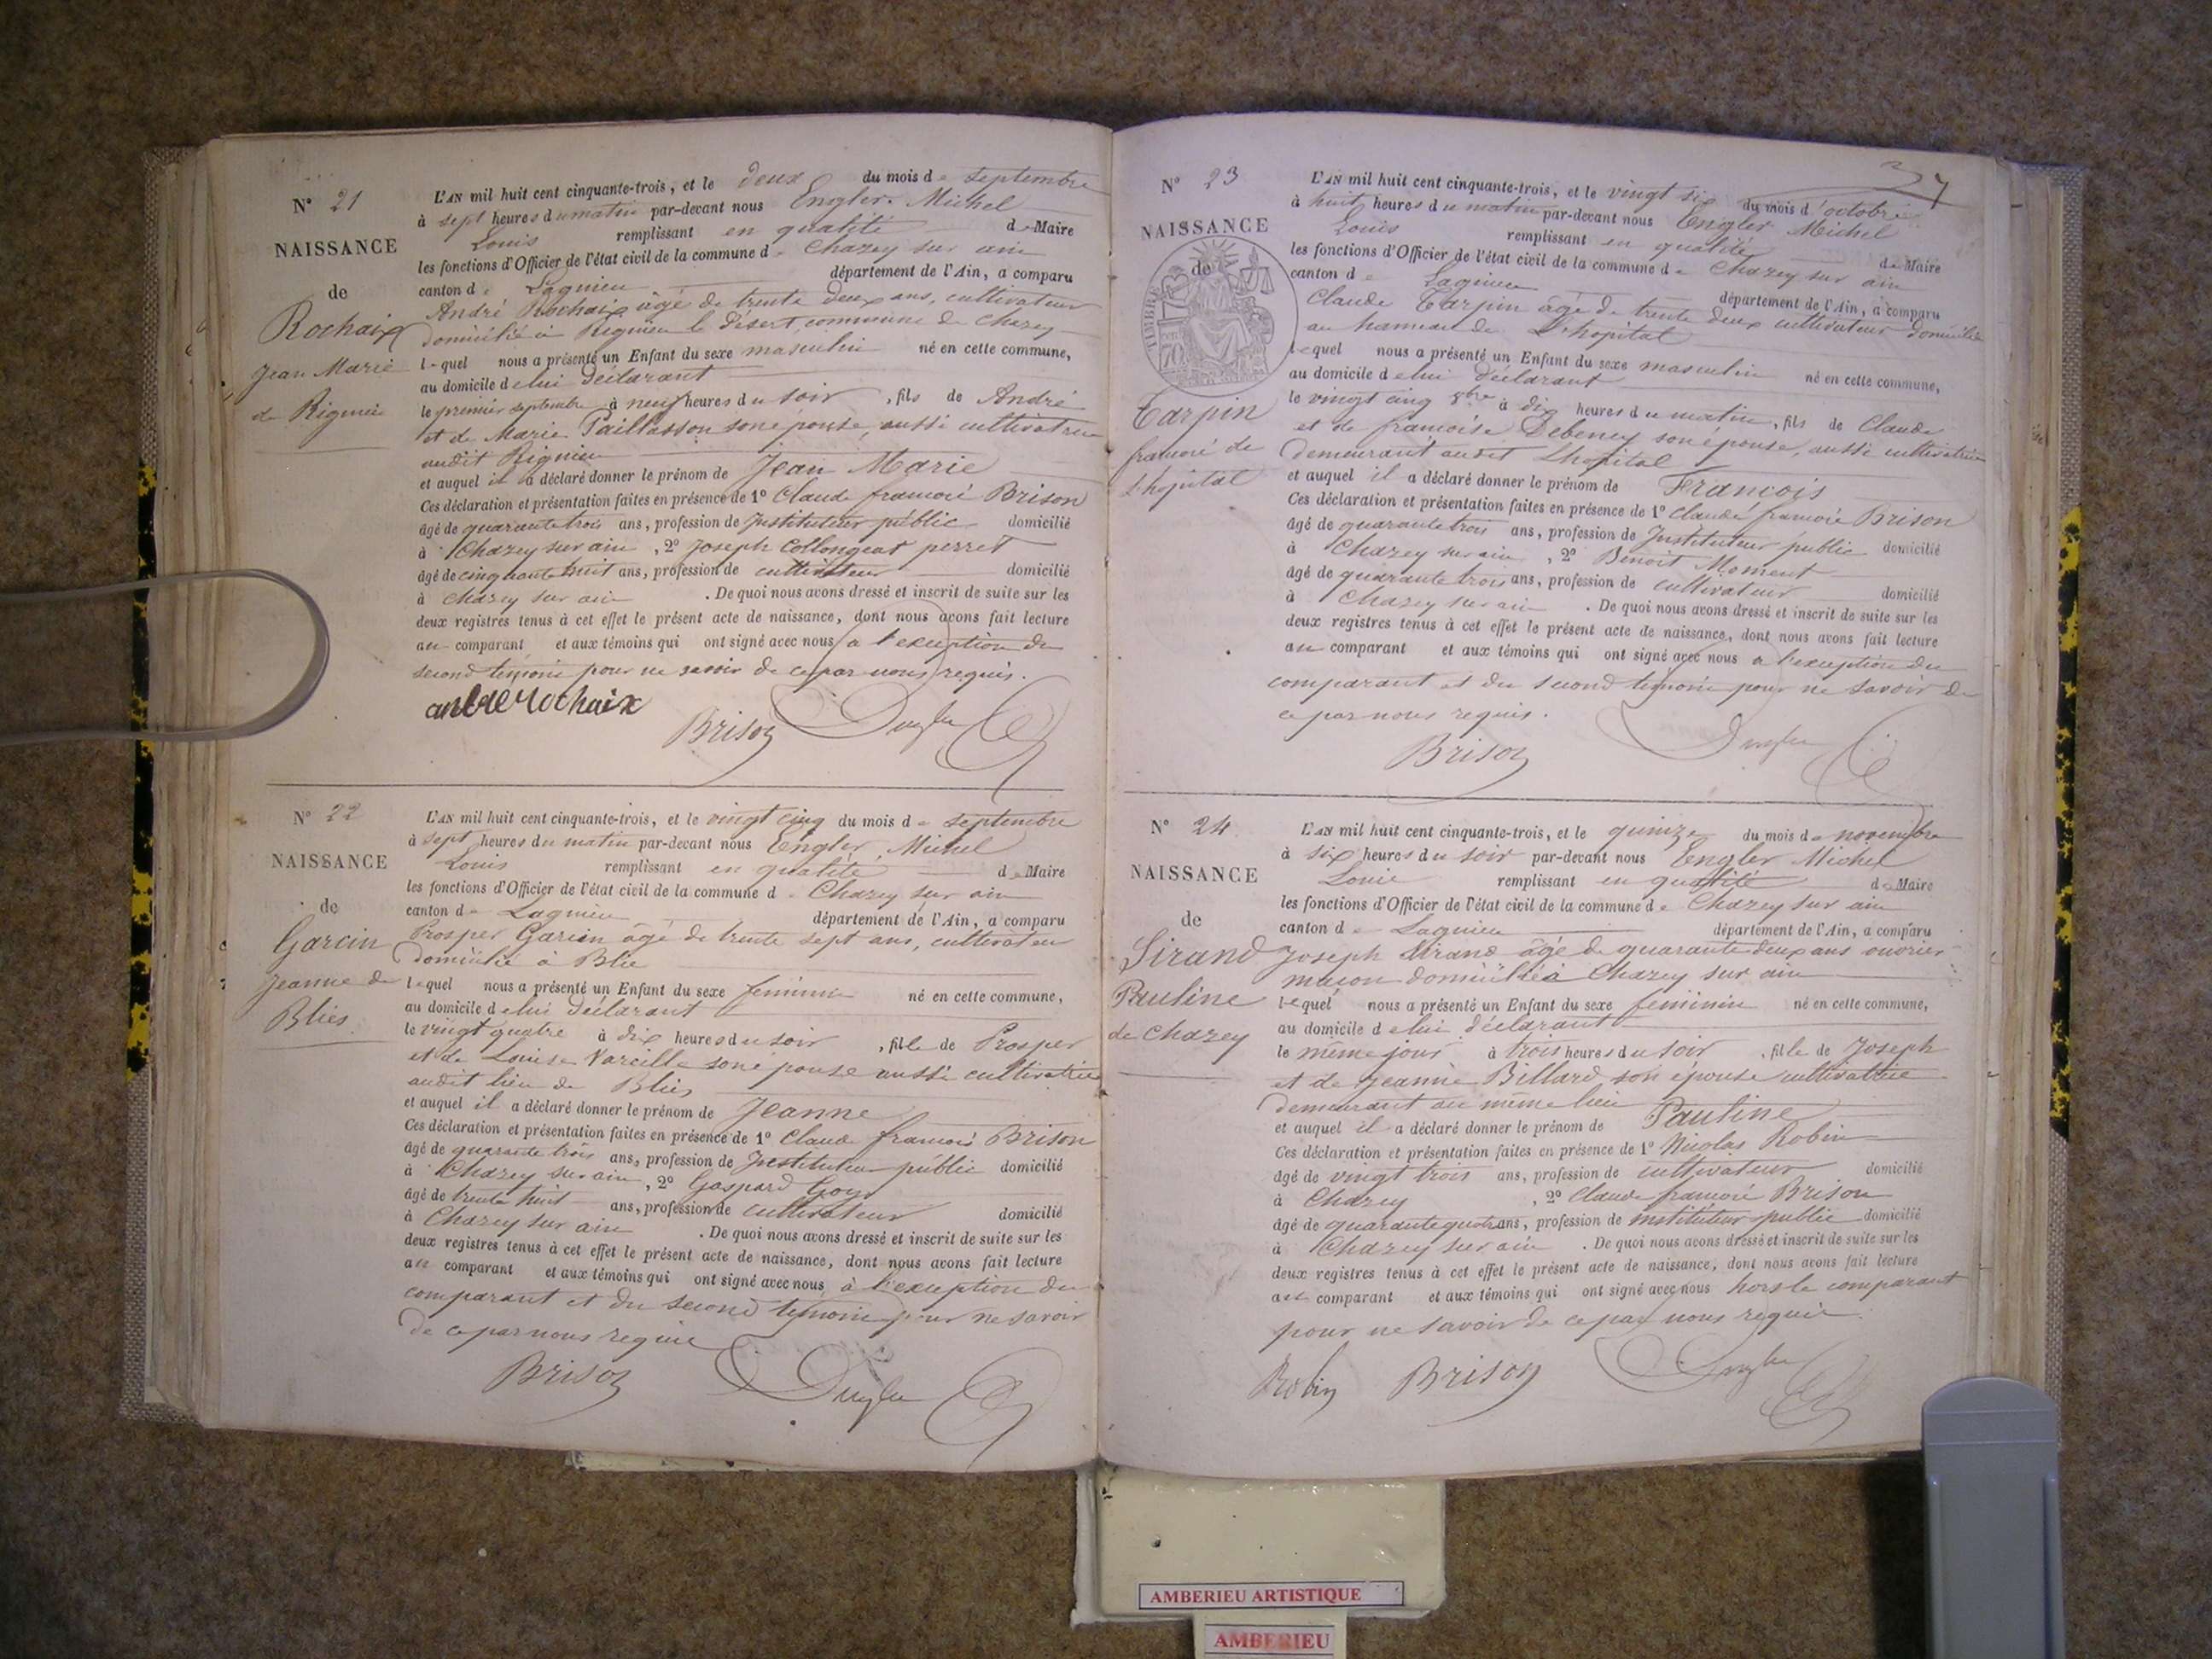 N° 21
NAISSANCE
de
Rochaix
Jean Marie
de Rignieu
L'AN mil huit cent cinquante-trois, et le deux du mois de septembre
à sept heures du matin par-devant nous Engler Michel
Louis remplissant en qualité de Maire
les fonctions d'Officier de l'état civil de la commune de Chazey sur ain
canton de Lagnieu département de l'Ain, a comparu
André Rochaix âgé de trente deux ans, cultivateur
domicilié à Rignieu le désert commune de Chazey
lequel nous a présenté un Enfant du sexe masculin né en cette commune,
au domicile de lui déclarant
le premier septembre à neuf heures du soir, fils de André
et de Marie Paillasson son épouse, aussi cultivatrice
audit Rignieu
et auquel il a déclaré donner le prénom de Jean Marie
Ces déclaration et présentation faites en présence de 1° Claude françois Brison
âgé de quarante trois ans, profession de Instituteur public domicilié
à Chazey sur ain, 2° Joseph Collongeat perret
âgé de cinquante huit ans, profession de cultivateur domicilié
à Chazey sur ain. De quoi nous avons dressé et inscrit de suite sur les
deux registres tenus à cet effet le présent acte de naissance, dont nous avons fait lecture
au comparant et aux témoins qui ont signé avec nous a l'exception du
second témoin pour ne savoir de ce par nous requis.
andré rochaix
Brison Engler
N° 22
NAISSANCE
de
Garcin
Jeanne de
Blies
L'AN mil huit cent cinquante-trois, et le vingt cinq du mois de septembre
à sept heures du matin par-devant nous Engler Michel
Louis remplissant en qualité de Maire
les fonctions d'Officier de l'état civil de la commune de Chazey sur ain
canton de Lagnieu département de l'Ain, a comparu
Prosper Garcin âgé de trente sept ans, cultivateur
domicilié à Blie
lequel nous a présenté un Enfant du sexe feminin né en cette commune,
au domicile de lui déclarant
le vingt quatre à dix heures du soir, fille de Prosper
et de Louise Vareille son épouse aussi cultivatrice
audit lieu de Blies
et auquel il a déclaré donner le prénom de Jeanne
Ces déclaration et présentation faites en présence de 1° Claude françois Brison
âgé de quarante trois ans, profession de Instituteur public domicilié
à Chazey sur ain, 2° Gaspard Goy
âgé de trente huit ans, profession de cultivateur domicilié
à Chazey sur ain. De quoi nous avons dressé et inscrit de suite sur les
deux registres tenus à cet effet le présent acte de naissance, dont nous avons fait lecture
au comparant et aux témoins qui ont signé avec nous à l'exception du
comparant et du second témoin pour ne savoir
de ce par nous requis
Brison Engler
37
N° 23
NAISSANCE
de
TIMBRE
70
Tarpin
françois de
l'hopital
L'AN mil huit cent cinquante-trois, et le vingt six du mois d'octobre
à huit heures du matin par-devant nous Engler Michel
Louis remplissant en qualité de Maire
les fonctions d'Officier de l'état civil de la commune de Chazey sur ain
canton de Lagnieu département de l'Ain, a comparu
Claude Tarpin âgé de trente deux cultivateur domicilié
au hameau de L'hopital
lequel nous a présenté un Enfant du sexe masculin né en cette commune,
au domicile de lui déclarant
le vingt cinq 8bre à dix heures du matin, fils de Claude
et de françoise Debeney son épouse, aussi cultivatrice
demeurant audit Lhopital
et auquel il a déclaré donner le prénom de François
Ces déclaration et présentation faites en présence de 1° Claude françois Brison
âgé de quarante trois ans, profession de Instituteur public domicilié
à Chazey sur ain, 2° Benoit Moment
âgé de quarante trois ans, profession de cultivateur domicilié
à Chazey sur ain. De quoi nous avons dressé et inscrit de suite sur les
deux registres tenus à cet effet le présent acte de naissance, dont nous avons fait lecture
au comparant et aux témoins qui ont signé avec nous a l'exception du
comparant et du second témoin pour ne savoir de
ce par nous requis.
Brison Engler
N° 24
NAISSANCE
de
Sirand
Pauline
de Chazey
L'AN mil huit cent cinquante-trois, et le quinze du mois de novembre
à six heures du soir par-devant nous Engler Michel
Louis remplissant en qualité de Maire
les fonctions d'Officier de l'état civil de la commune de Chazey sur ain
canton de Lagnieu département de l'Ain, a comparu
Joseph Sirand âgé de quarante deux ans ouvrier
maçon domicilié à Chazey sur ain
lequel nous a présenté un Enfant du sexe feminin né en cette commune,
au domicile de lui déclarant
le même jour à trois heures du soir, fille de Joseph
et de jeanne Billard son épouse cultivatrice
demeurant au même lieu
et auquel il a déclaré donner le prénom de Pauline
Ces déclaration et présentation faites en présence de 1° Nicolas Robin
âgé de vingt trois ans, profession de cultivateur domicilié
à Chazey, 2° Claude françois Brison
âgé de quarante quatre ans, profession de instituteur public domicilié
à Chazey sur ain. De quoi nous avons dressé et inscrit de suite sur les
deux registres tenus à cet effet le présent acte de naissance, dont nous avons fait lecture
au comparant et aux témoins qui ont signé avec nous hors le comparant
pour ne savoir de ce par nous requis
Robin Brison Engler
AMBERIEU ARTISTIQUE
AMBERIEU